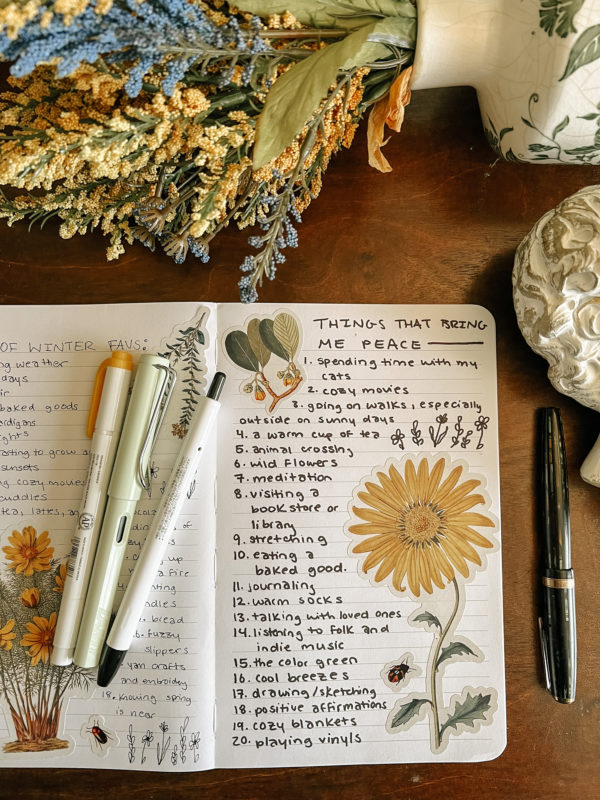 OF WINTER FAVS:
weather
days
baked goods
to grow
sunsets
cozy movies
cuddles
tea,
of
up
a fire
bread
fuzzy
slippers
yarn crafts
and embroidery
18. knowing spring
is near
THINGS THAT BRING
ME PEACE
1. spending time with my
cats
2. cozy movies
3. going on walks, especially
outside on sunny days
4. a warm cup of tea
5. animal crossing
6. wild flowers
7. meditation
8. visiting a
bookstore or
library
9. stretching
10. eating a
baked good.
11. journaling
12. warm socks
13. talking with loved ones
14. listening to folk and
indie music
15. the color green
16. cool breezes
17. drawing/sketching
18. positive affirmations
19. cozy blankets
20. playing vinyls